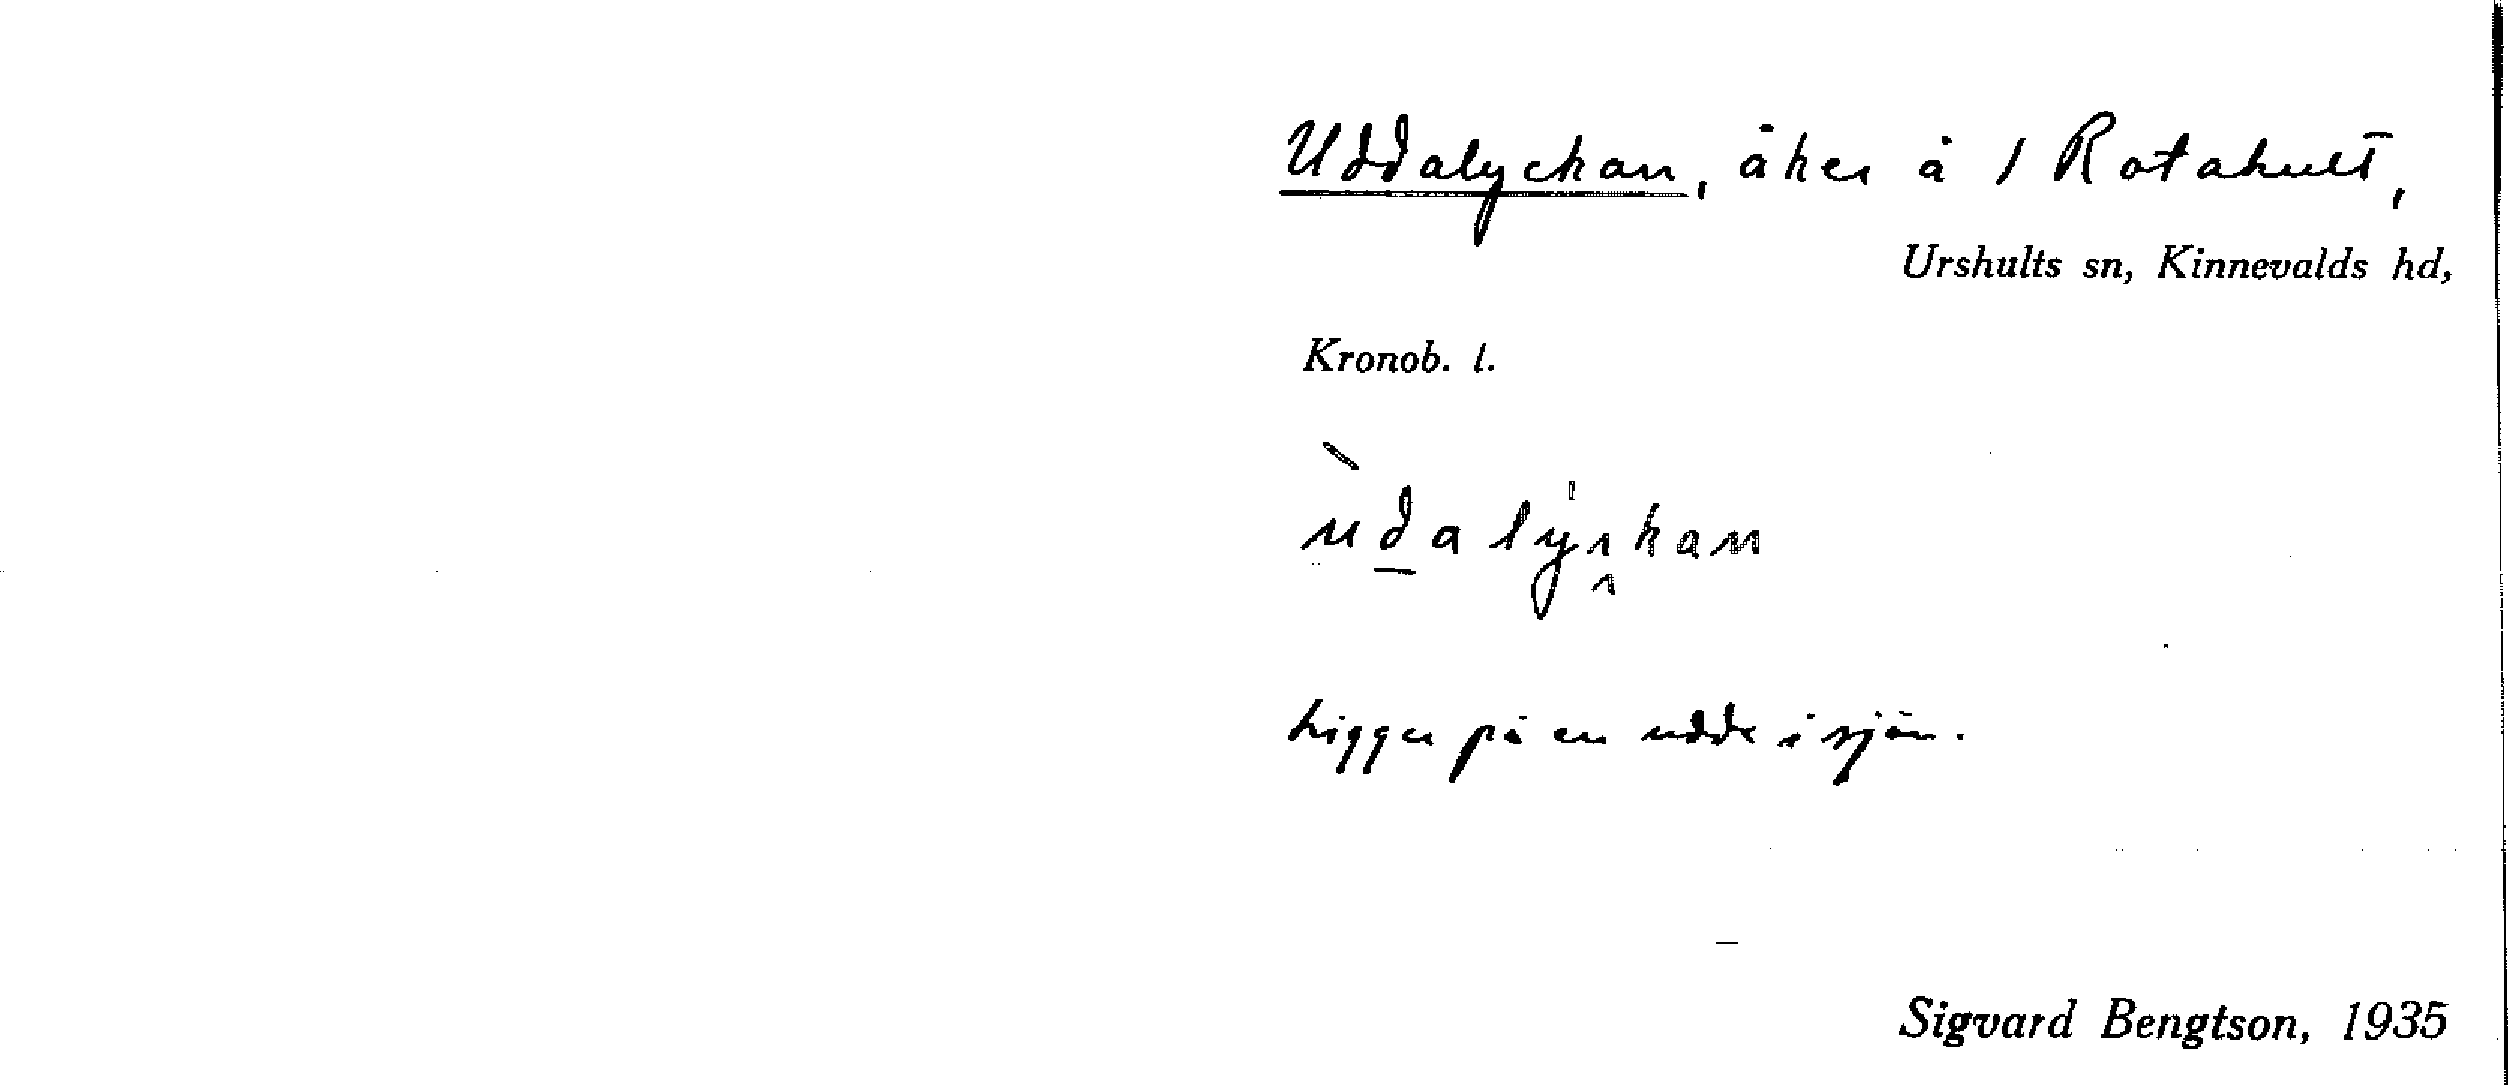 Uddalyckan, åker å 1 Rotahult,
Urshults sn, Kinnevalds hd,
Kronob. l.
Ligger på en udde i sjön.
Sigvard Bengtson, 1935